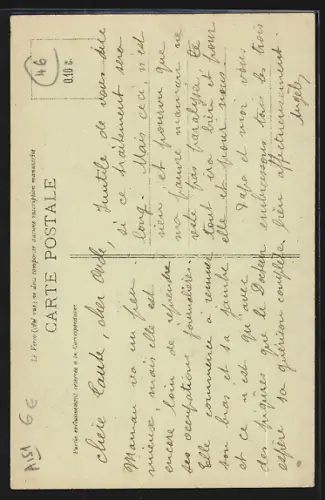 46
0.10 c.
Le Verso (côté vue) ne doit comporter aucune inscription manuscrite
CARTE POSTALE
Partie exclusivement réservée à la Correspondance
Chère tante, cher oncle,
Maman va un peu
mieux, mais elle est
encore loin de reprendre
ses occupations journalières.
Elle commence à remuer
son bras et sa jambe
et ce n'est qu'avec
des piqûres que le Docteur
espère sa guérison complète.
Inutile de vous dire
si ce traitement sera
long. Mais ceci n'est
rien, et pourvu que
ma pauvre maman ne
reste pas paralysée
tout ira bien et pour
elle et pour nous.
Papa et moi vous
embrassons tous les trois
bien affectueusement.
Angèle
A151
6 €